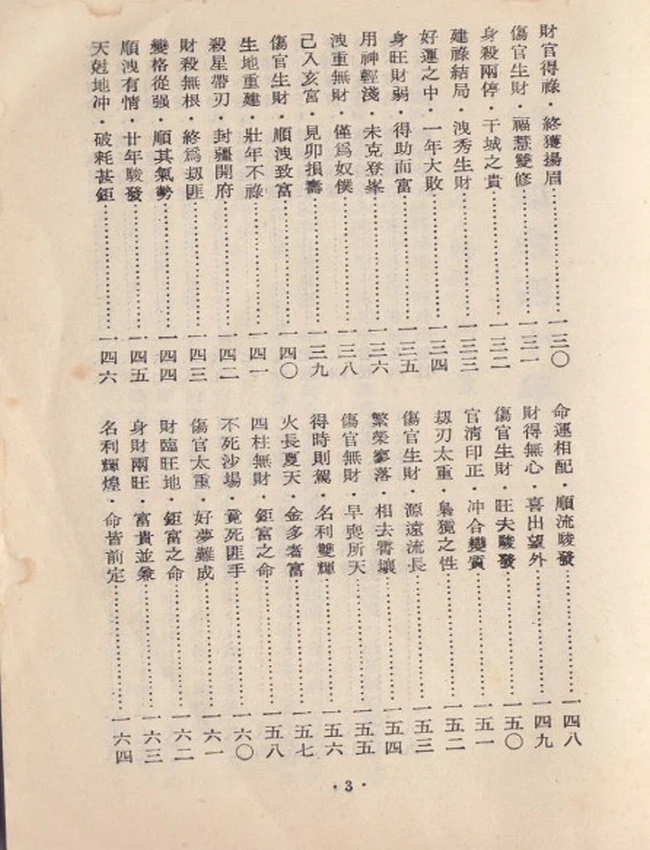 財官得祿・終獲揚眉⋯⋯一三〇
傷官生財・福慧雙修⋯⋯一三一
身殺兩停・干城之貴⋯⋯一三二
建祿結局・洩秀生財⋯⋯一三三
好運之中・一年大敗⋯⋯一三四
身旺財弱・得助而富⋯⋯一三五
用神輕淺・未克登峯⋯⋯一三六
洩重無財・僅爲奴僕⋯⋯一三八
己入亥宮・見卯損壽⋯⋯一三九
傷官生財・順洩致富⋯⋯一四〇
生地重建・壯年不祿⋯⋯一四一
殺星帶刃・封疆開府⋯⋯一四二
財殺無根・終爲刼匪⋯⋯一四三
變格從强・順其氣勢⋯⋯一四四
順洩有情・廿年駿發⋯⋯一四五
天尅地冲・破耗甚鉅⋯⋯一四六
命運相配・順流駿發⋯⋯一四八
財得無心・喜出望外⋯⋯一四九
傷官生財・旺夫駿發⋯⋯一五〇
官清印正・冲合變質⋯⋯一五一
刼刃太重・梟獍之性⋯⋯一五二
傷官生財・源遠流長⋯⋯一五三
繁榮寥落・相去霄壤⋯⋯一五四
傷官無財・早喪所天⋯⋯一五五
得時則駕・名利雙輝⋯⋯一五六
火長夏天・金多者富⋯⋯一五七
四柱無財・鉅富之命⋯⋯一五八
不死沙場・竟死匪手⋯⋯一六〇
傷官太重・好夢難成⋯⋯一六一
財臨旺地・鉅富之命⋯⋯一六二
身財兩旺・富貴並兼⋯⋯一六三
名利輝煌・命皆前定⋯⋯一六四
・3・